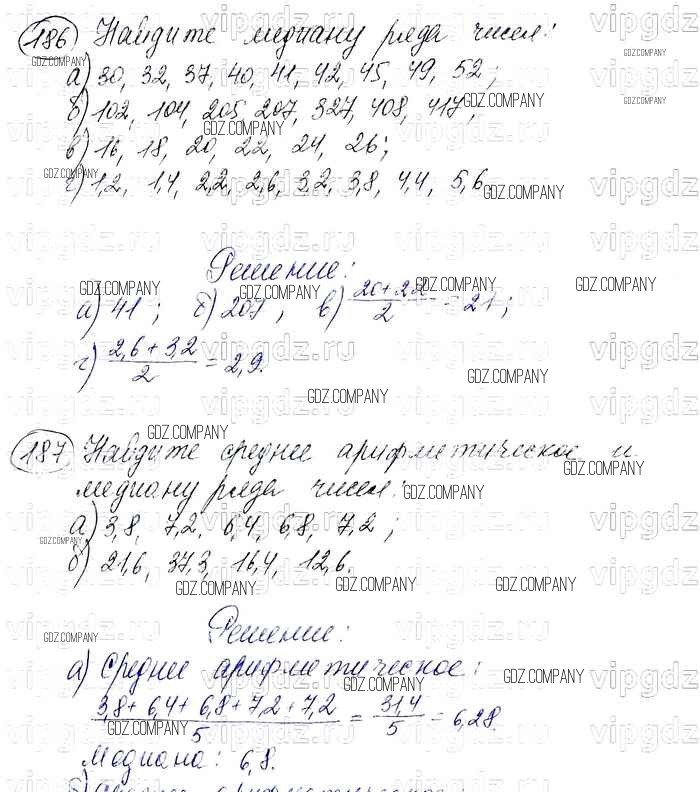 186 Найдите медиану ряда чисел:
а) 30, 32, 37, 40, 41, 42, 45, 49, 52;
б) 102, 104, 205, 207, 327, 408, 417;
в) 16, 18, 20, 22, 24, 26;
г) 1,2, 1,4, 2,2, 2,6, 3,2, 3,8, 4,4, 5,6.
Решение:
а) 41; б) 207; в) (20+22)/2 = 21;
г) (2,6+3,2)/2 = 2,9.
187 Найдите среднее арифметическое и
медиану ряда чисел:
а) 3,8, 7,2, 6,4, 6,8, 7,2;
б) 21,6, 37,3, 16,4, 12,6.
Решение:
а) Среднее арифметическое:
(3,8+6,4+6,8+7,2+7,2)/5 = 31,4/5 = 6,28.
Медиана: 6,8.